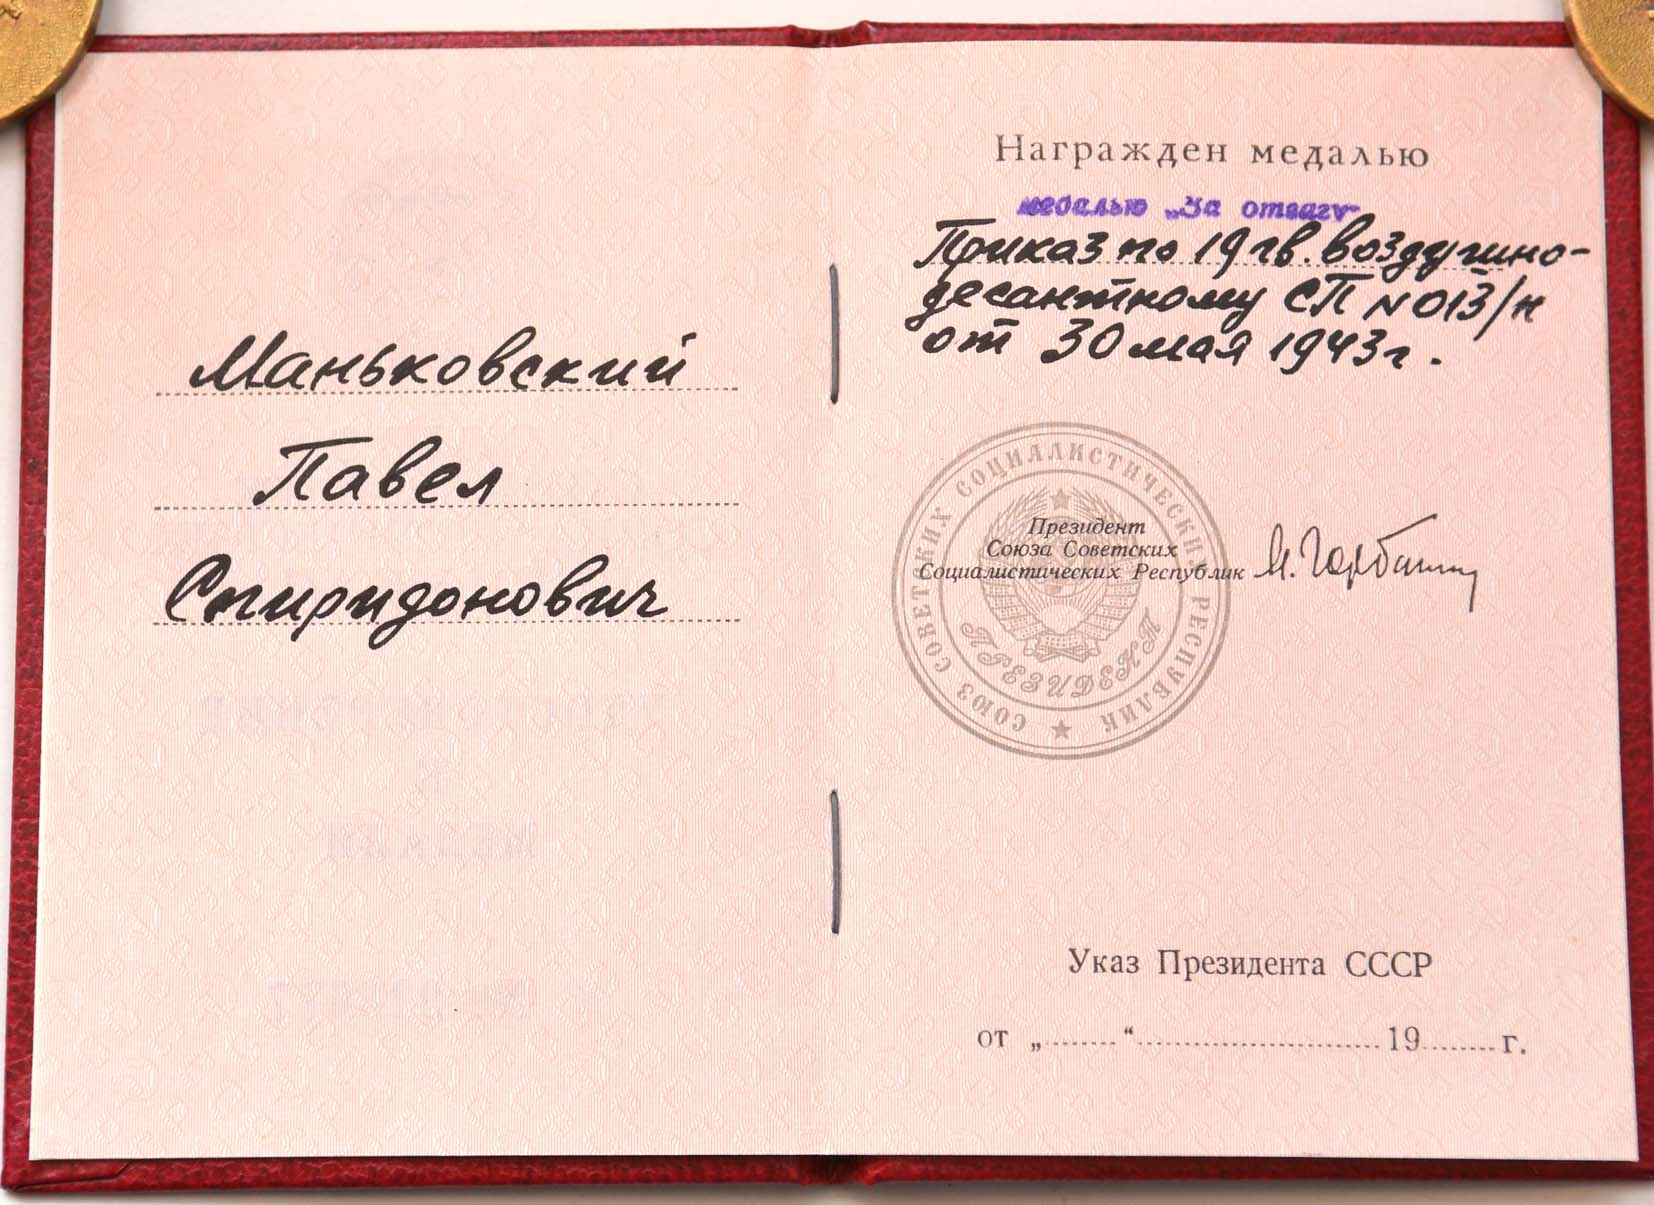 Маньковский
Павел
Спиридонович
Награжден медалью
медалью „За отвагу
Приказ по 19 гв. воздушно-
десантному СП № 013/н
от 30 мая 1943 г.
СОЮЗ СОВЕТСКИХ СОЦИАЛИСТИЧЕСКИХ РЕСПУБЛИК
ПРЕЗИДЕНТ
Президент
Союза Советских
Социалистических Республик М. Горбачев
Указ Президента СССР
от „........“........................19........г.